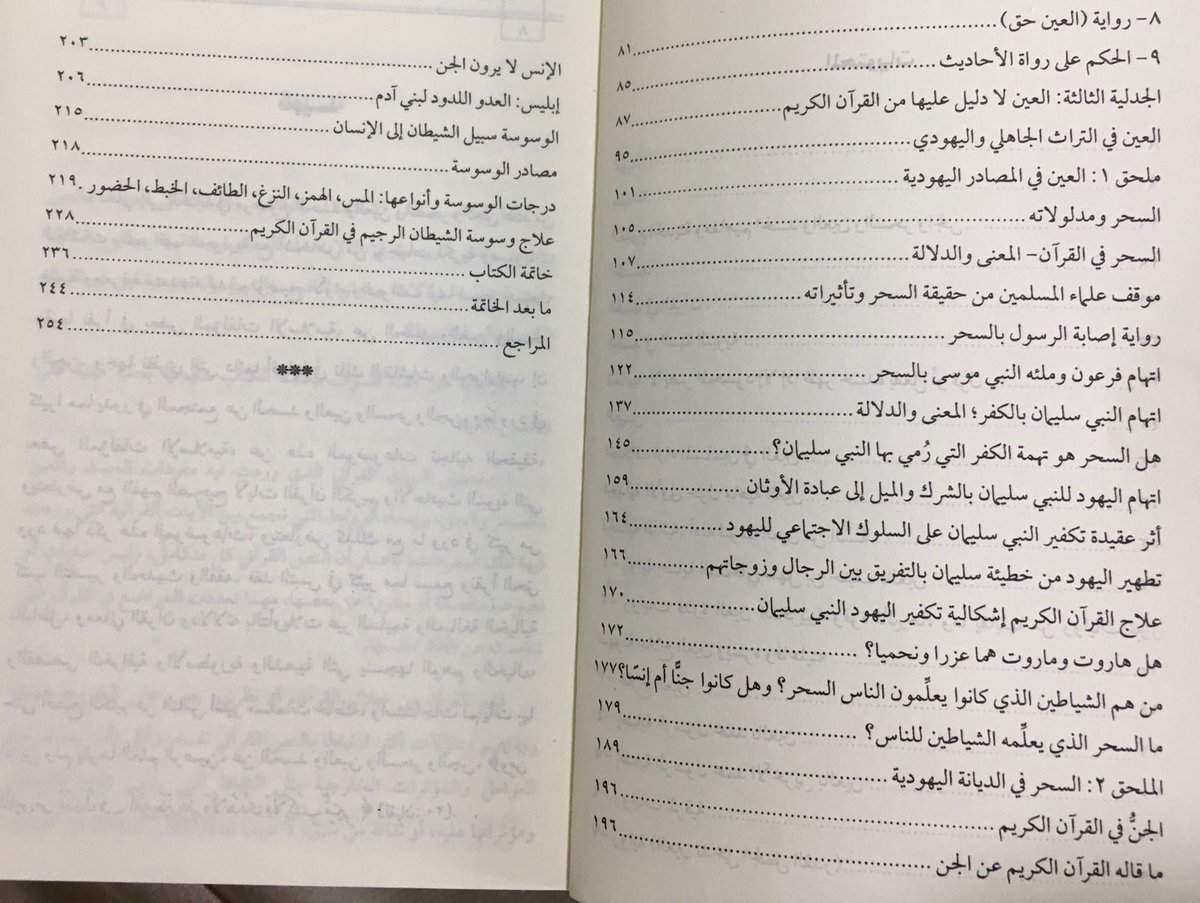 ٨- رواية (العين حق) ........ ٨١
٩- الحكم على رواة الأحاديث ........ ٨٥
الجدلية الثالثة: العين لا دليل عليها من القرآن الكريم ........ ٨٧
العين في التراث الجاهلي واليهودي ........ ٩٥
ملحق ١: العين في المصادر اليهودية ........ ١٠١
السحر ومدلولاته ........ ١٠٥
السحر في القرآن- المعنى والدلالة ........ ١٠٧
موقف علماء المسلمين من حقيقة السحر وتأثيراته ........ ١١٤
رواية إصابة الرسول بالسحر ........ ١١٥
اتهام فرعون وملئه النبي موسى بالسحر ........ ١٢٢
اتهام النبي سليمان بالكفر؛ المعنى والدلالة ........ ١٣٧
هل السحر هو تهمة الكفر التي رُمي بها النبي سليمان؟ ........ ١٤٥
اتهام اليهود للنبي سليمان بالشرك والميل إلى عبادة الأوثان ........ ١٥٩
أثر عقيدة تكفير النبي سليمان على السلوك الاجتماعي لليهود ........ ١٦٤
تطهير اليهود من خطيئة سليمان بالتفريق بين الرجال وزوجاتهم ........ ١٦٦
علاج القرآن الكريم إشكالية تكفير اليهود النبي سليمان ........ ١٧٠
هل هاروت وماروت هما عزرا ونحميا؟ ........ ١٧٢
من هم الشياطين الذي كانوا يعلِّمون الناس السحر؟ وهل كانوا جنًّا أم إنسًا؟ ١٧٧
ما السحر الذي يعلِّمه الشياطين للناس؟ ........ ١٧٩
الملحق ٢: السحر في الديانة اليهودية ........ ١٨٩
الجنُّ في القرآن الكريم ........ ١٩٦
ما قاله القرآن الكريم عن الجن ........ ١٩٦
الإنس لا يرون الجن ........ ٢٠٣
إبليس: العدو اللدود لبني آدم ........ ٢٠٦
الوسوسة سبيل الشيطان إلى الإنسان ........ ٢١٥
مصادر الوسوسة ........ ٢١٨
درجات الوسوسة وأنواعها: المس، الهمز، النزغ، الطائف، الخبط، الحضور . ٢١٩
علاج وسوسة الشيطان الرجيم في القرآن الكريم ........ ٢٢٨
خاتمة الكتاب ........ ٢٣٦
ما بعد الخاتمة ........ ٢٤٤
المراجع ........ ٢٥٤
***